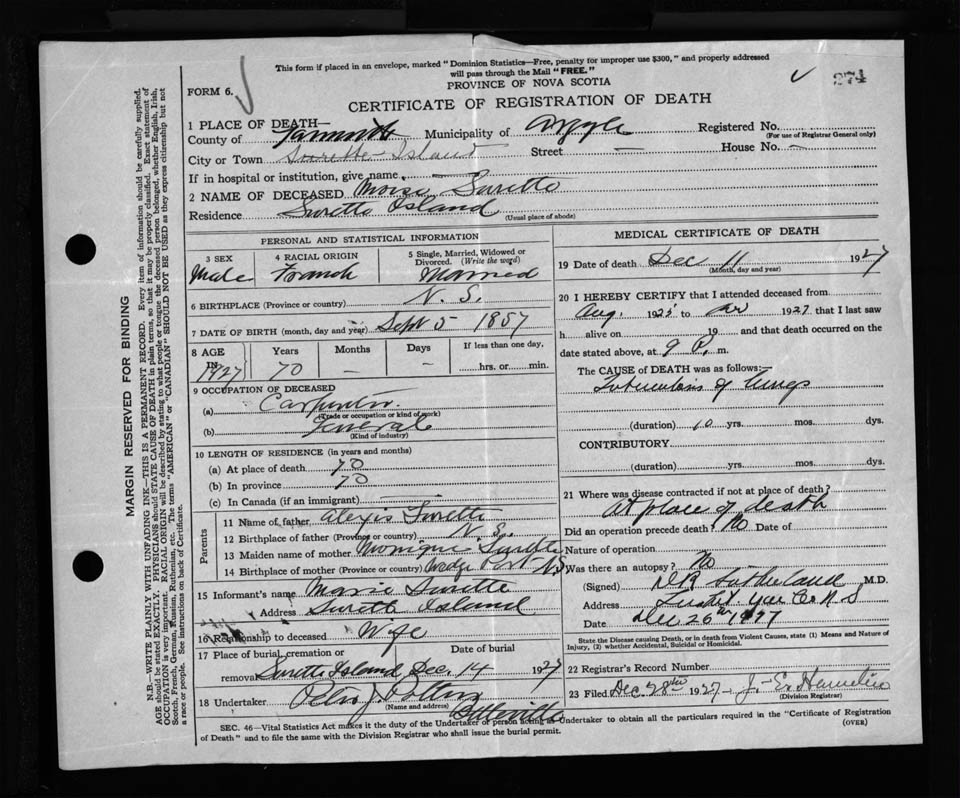 This form if placed in an envelope, marked "Dominion Statistics—Free, penalty for improper use $300," and properly addressed
will pass through the Mail "FREE."
274
FORM 6.
PROVINCE OF NOVA SCOTIA
CERTIFICATE OF REGISTRATION OF DEATH
1 PLACE OF DEATH—
County of Yarmouth Municipality of Argyle Registered No.
(For use of Registrar General only)
City or Town Surette Island Street — House No. —
If in hospital or institution, give name
2 NAME OF DECEASED Moise Surette
Residence Surette Island
(Usual place of abode)
PERSONAL AND STATISTICAL INFORMATION
3 SEX 4 RACIAL ORIGIN 5 Single, Married, Widowed or
Divorced. (Write the word)
Male French Married
6 BIRTHPLACE (Province or country) N. S.
7 DATE OF BIRTH (month, day and year) Sept 5 1857
8 AGE Years Months Days If less than one day,
IN 1927 70 — — hrs. or min.
9 OCCUPATION OF DECEASED
(a) Carpenter
(Trade or occupation or kind of work)
(b) General
(Kind of industry)
10 LENGTH OF RESIDENCE (in years and months)
(a) At place of death 70
(b) In province 70
(c) In Canada (if an immigrant) —
Parents
11 Name of father Alexis Surette
12 Birthplace of father (Province or country) N. S.
13 Maiden name of mother Monique Surette
14 Birthplace of mother (Province or country) Wedge Port NS
15 Informant's name Marie Surette
Address Surette Island
16 Relationship to deceased Wife
17 Place of burial, cremation or Date of burial
removal Surette Island Dec. 14 1927
18 Undertaker
(Name and address)
MEDICAL CERTIFICATE OF DEATH
19 Date of death Dec 11 1927
(Month, day and year)
20 I HEREBY CERTIFY that I attended deceased from
Aug. 1925 to 1927 that I last saw
h alive on 19 and that death occurred on the
date stated above, at 9 P. m.
The CAUSE of DEATH was as follows:—
Tuberculosis of lungs
(duration) 10 yrs. mos. dys.
CONTRIBUTORY
(duration) yrs. mos. dys.
21 Where was disease contracted if not at place of death?
At place of death
Did an operation precede death? No Date of
Nature of operation
Was there an autopsy? No
(Signed) Sutherland M.D.
Address Yar Co N S
Date Dec 26th
State the Disease causing Death, or in death from Violent Causes, state (1) Means and Nature of
Injury, (2) whether Accidental, Suicidal or Homicidal.
22 Registrar's Record Number
23 Filed Dec 28th 1927 J. E. Hamilton
(Division Registrar)
SEC. 46—Vital Statistics Act makes it the duty of the Undertaker or person acting as Undertaker to obtain all the particulars required in the "Certificate of Registration
of Death" and to file the same with the Division Registrar who shall issue the burial permit.
(OVER)
MARGIN RESERVED FOR BINDING
N.B.—WRITE PLAINLY WITH UNFADING INK—THIS IS A PERMANENT RECORD. Every item of information should be carefully supplied.
AGE should be stated EXACTLY. PHYSICIANS should STATE CAUSE OF DEATH in plain terms, so that it may be properly classified. Exact statement of
OCCUPATION is very important. RACIAL ORIGIN will be described by stating to what people or tongue the deceased person belonged, whether English, Irish,
Scotch, French, German, Russian, Ruthenian, etc. The terms "AMERICAN" or "CANADIAN" SHOULD NOT BE USED as they express citizenship but not
a race or people. See instructions on back of Certificate.